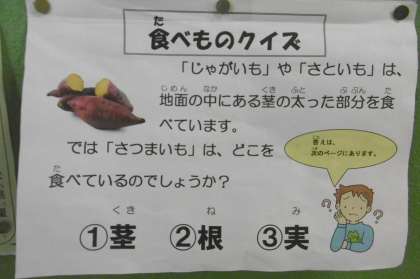 食べものクイズ
「じゃがいも」や「さといも」は、
地面の中にある茎の太った部分を食
べています。
では「さつまいも」は、どこを
食べているのでしょうか？
答えは、
次のページにあります。
①茎 ②根 ③実